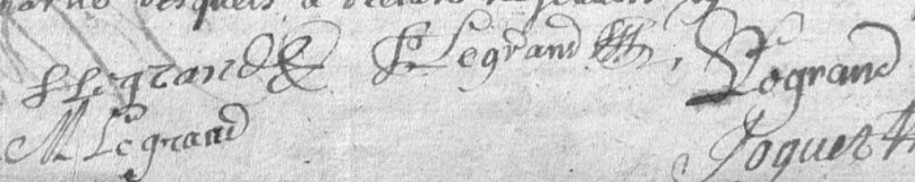 lesquels a declaré
f Legrand F Legrand Legrand
M Legrand Joquet